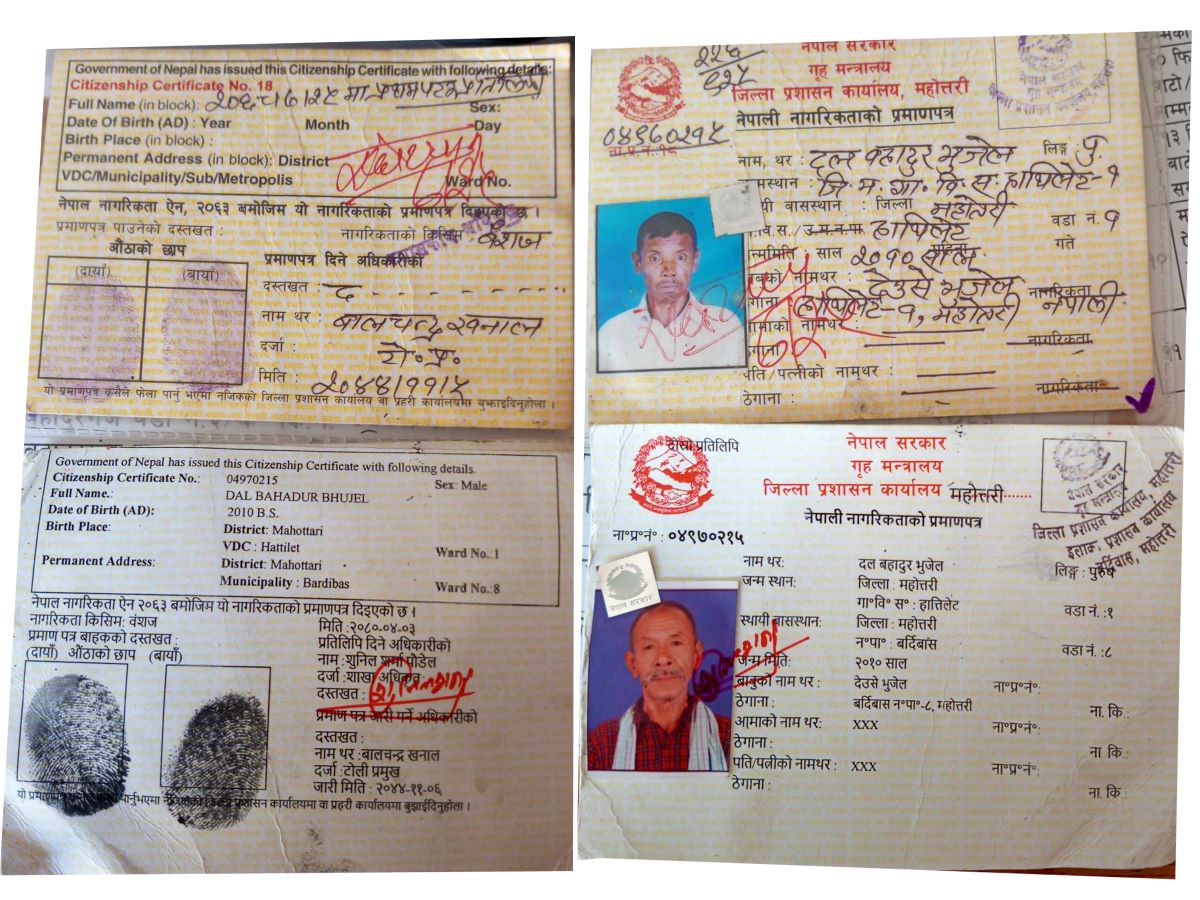 Government of Nepal has issued this Citizenship Certificate with following details:
Citizenship Certificate No. 18
Full Name (in block):
Sex:
Date Of Birth (AD) : Year Month Day
Birth Place (in block) :
Permanent Address (in block): District
VDC/Municipality/Sub/Metropolis Ward No.
नेपाल नागरिकता ऐन, २०६३ बमोजिम यो नागरिकताको प्रमाणपत्र दिइएको छ ।
प्रमाणपत्र पाउनेको दस्तखत : नागरिकताको किसिम : वंशज
औंठाको छाप
(दायाँ) (बायाँ)
प्रमाणपत्र दिने अधिकारीको
दस्तखत :
नाम थर : बालचन्द्र खनाल
दर्जा :
मिति : २०४४।११।
यो प्रमाणपत्र कसैले फेला पार्नु भएमा नजिकको जिल्ला प्रशासन कार्यालय वा प्रहरी कार्यालयमा बुझाइदिनुहोला ।
नेपाल सरकार
गृह मन्त्रालय
जिल्ला प्रशासन कार्यालय, महोत्तरी
नेपाली नागरिकताको प्रमाणपत्र
नाम, थर : दल बहादुर भुजेल लिङ्ग :
जि. म. गा. वि. स. हात्तिलेट-१
बासस्थान : जिल्ला महोत्तरी
हात्तिलेट वडा नं. १
साल २०१० साल गते
नामथर : देउसे भुजेल नागरिकता
हात्तिलेट-१, महोत्तरी नेपाली
नामथर : नागरिकता
पति/पत्नीको नामथर :
ठेगाना : नागरिकता
Government of Nepal has issued this Citizenship Certificate with following details
Citizenship Certificate No.: 04970215 Sex: Male
Full Name.: DAL BAHADUR BHUJEL
Date of Birth (AD): 2010 B.S.
Birth Place: District: Mahottari
VDC : Hattilet Ward No.:1
Permanent Address: District: Mahottari
Municipality : Bardibas Ward No.:8
नेपाल नागरिकता ऐन २०६३ बमोजिम यो नागरिकताको प्रमाणपत्र दिइएको छ ।
नागरिकता किसिम: वंशज मिति :२०८०-०४-०३
प्रमाण पत्र बाहकको दस्तखत : प्रतिलिपि दिने अधिकारीको
(दायाँ) औंठाको छाप (बायाँ) नाम :शुनिल शर्मा पौडेल
दर्जा :शाखा अधिकृत
दस्तखत :
प्रमाण पत्र जारी गर्ने अधिकारीको
दस्तखत :
नाम थर :बालचन्द्र खनाल
दर्जा :टोली प्रमुख
जारी मिति : २०४४-११-०६
यो प्रमाणपत्र पार्नुभएमा जिल्ला प्रशासन कार्यालयमा वा प्रहरी कार्यालयमा बुझाईदिनुहोला ।
दोस्रो प्रतिलिपि
नेपाल सरकार
गृह मन्त्रालय
जिल्ला प्रशासन कार्यालय महोत्तरी......
नेपाली नागरिकताको प्रमाणपत्र
नेपाल सरकार
गृह मन्त्रालय
जिल्ला प्रशासन कार्यालय, महोत्तरी
इलाका प्रशासन कार्यालय
बर्दिवास, महोत्तरी
ना॰प्र॰नं॰ : ०४९७०२१५
नेपाल सरकार
नाम थर: दल बहादुर भुजेल लिङ्ग : पुरुष
जन्म स्थान: जिल्ला : महोत्तरी
गा॰वि॰ स॰ : हात्तिलेट वडा नं. :१
स्थायी बासस्थान: जिल्ला : महोत्तरी
न॰पा॰ : बर्दिबास वडा नं. :८
जन्म मिति: २०१० साल
बाबुको नाम थर : देउसे भुजेल ना॰प्र॰नं॰:
ठेगाना : बर्दिबास न॰पा॰-८, महोत्तरी ना. कि :
आमाको नाम थर: XXX ना॰प्र॰नं॰:
ठेगाना : ना. कि :
पति/पत्नीको नामथर : XXX ना॰प्र॰नं॰:
ठेगाना : ना. कि :